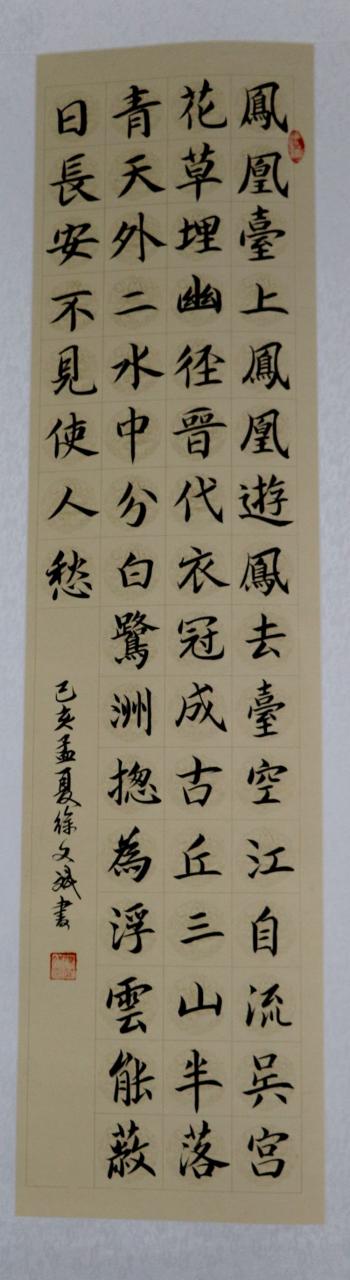 鳳凰臺上鳳凰遊鳳去臺空江自流吳宮
花草埋幽徑晉代衣冠成古丘三山半落
青天外二水中分白鷺洲揔為浮雲能蔽
日長安不見使人愁
己亥孟夏徐文斌書